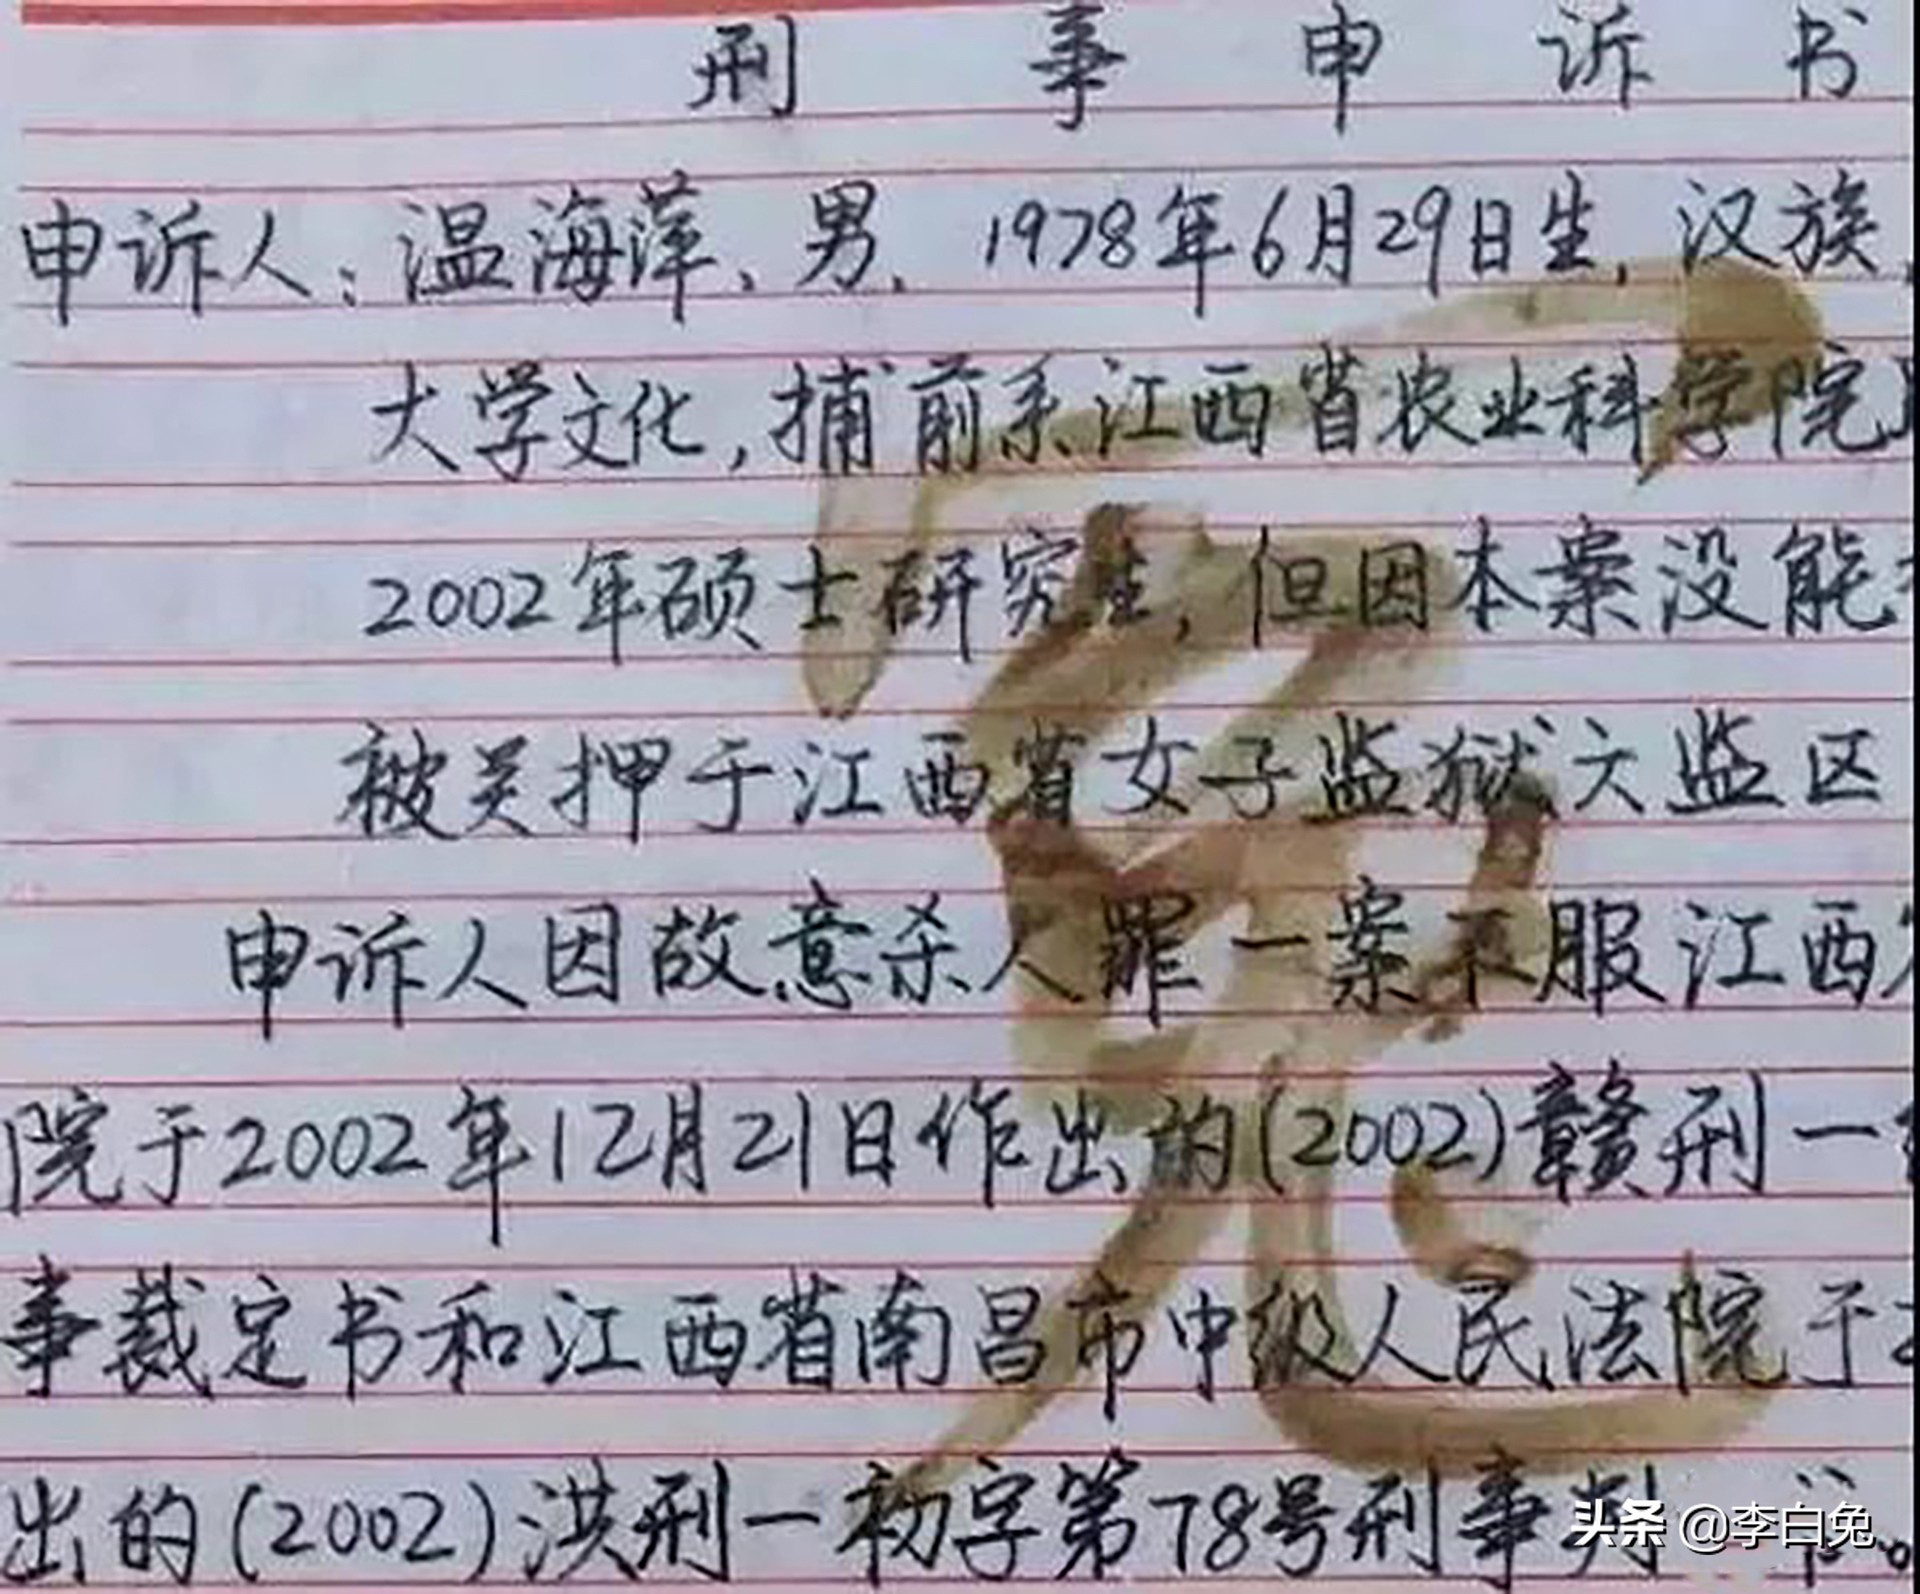 刑事申诉书
申诉人：温海萍、男、1978年6月29日生，汉族，
大学文化，捕前系江西省农业科学院
2002年硕士研究生，但因本案没能
被关押于江西省女子监狱六监区
申诉人因故意杀人罪一案不服江西
院于2002年12月21日作出的(2002)赣刑一
事裁定书和江西省南昌市中级人民法院于
出的(2002)洪刑一初字第78号刑事判
冤
头条 @李白兔